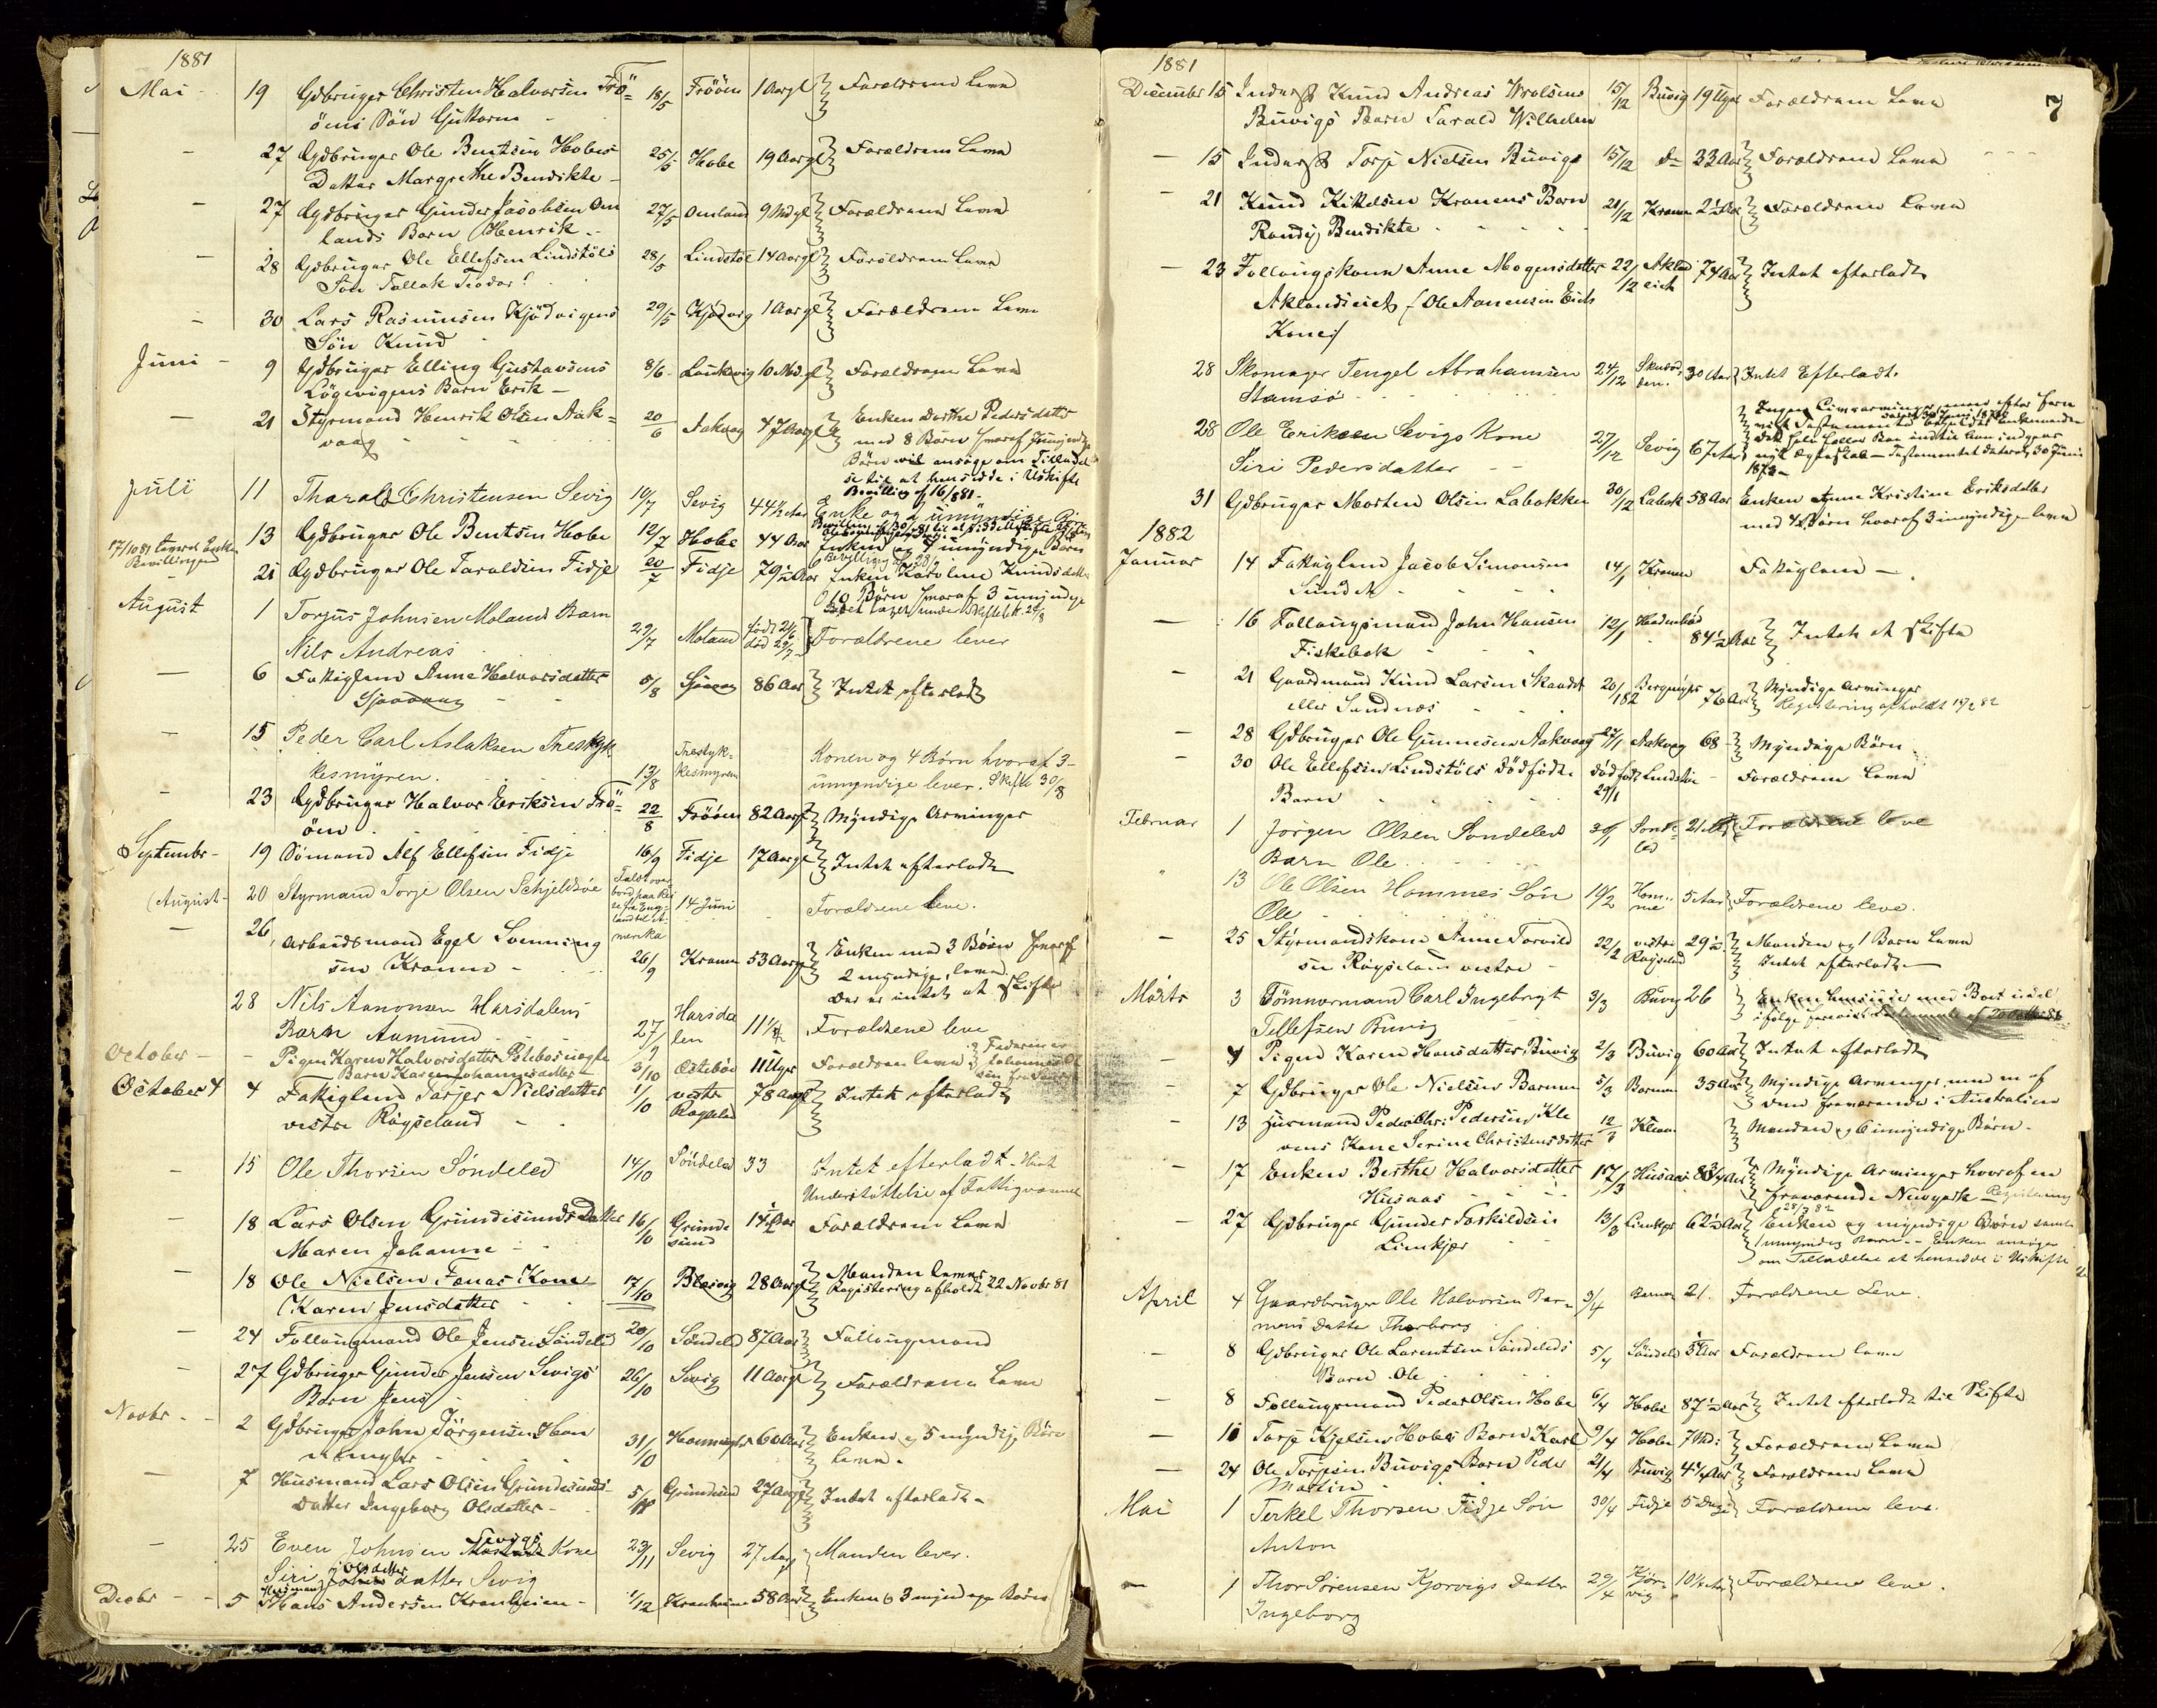 1881
Mai - 19 Gdbruger Christen Halvorsen Frö= 18/5 Frööen 1 Aargl Forældrene Leve
öens Sön Guttorm -
- 27 Gdbruger Ole Bentsen Hobes 25/5 Hobe 19 Aargl Forældrene Leve
Datter Margrethe Bendikte -
- 27 Gdbruger Gunder Jacobsen Om 27/5 Omland 9 Md gl Forældrene Leve
lands Barn Henrik -
- 28 Gdbruger Ole Ellefsen Lindstöls 28/5 Lindstöl 14 Aargl Forældrene Leve
Sön Tallak Teodor
- 30 Lars Rasmusen Kjödvigens 29/5 Kjödvig 1 Aargl Forældrene Leve
Sön Knud
Juni - 9 Gdbruger Elling Gustavsens 8/6 10 Md. gl Forældrene Leve
Lögevigens Barn Erik -
- 21 Styrmand Henrik Olsen Aak= 20/6 Aakvaag 47 Aargl Enken Dorthe Pedersdatter
vaag med 8 Börn hvoraf Umyndige
Börn vil ansöge om Tilladel
se til at hensidde i Uskifte
Bevilling af 16/8 81.
Juli 11 Tharald Christensen Sevig 10/7 Sevig 44 1/2 Aar Enke og 2 umyndige
13 Gdbruger Ole Bentsen Hobe 12/7 Hobe 44 Aar Enken og 4 umyndige Börn
17/10 81 Enken
Bevillingen
- 21 Gdbruger Ole Taraldsen Fidje 20/7 Fidje 79 1/2 Aar Enken Karolene Knudsdatter
10 Börn hvoraf 3 umyndige
August 1 Torjus Johnsen Molands Barn 29/7 Moland född 21/6 död 29/7 Forældrene lever
Nils Andreas
- 6 Fattiglem Anne Halvorsdatter 5/8 86 Aar Intet efterladt
- 15 Peder Carl Aslaksen Trestyk 13/8 Trestyk=
kesmyren Konen og 4 Börn hvoraf 3
kesmyren. umyndige lever. Skifte 30/8
- 23 Gdbruger Halvor Eriksen Frö= 22/8 Frööen 82 Aargl Myndige Arvinger
öen
Septembr - 19 Sömand Alf Ellefsen Fidje 16/9 Fidje 17 Aargl Intet efterladt
(August - 20 Styrmand Torje Olsen Schjeldsöe Faldt over
bord paa Rei
se fra Eng=
land til A=
merika 14 Juni Forældrene leve.
- 26 Arbeidsmand Egel Svenning 26/9 Kranen 53 Aargl Enken med 3 Börn hvoraf
sen Kranen - 2 myndige, leve
Der er intet at Skifte
28 Nils Aanonsen Harsdalens 27/9 Harsda
len 11 1/2 Forældrene leve
Barn Aamund
October - - Pigen Karen Halvorsdatter Östebös uægte 3/10 Östebö 11 Uger Forældrene leve Faderen er
Barn Karen Johannesdatter
October 4 4 Fattiglem Tarjer Nielsdatter 1/10 vestre
Röyseland 78 Aargl Intet efterladt
vestre Röyseland
- 15 Ole Thorsen Söndeled 14/10 Söndeled 33 Intet efterladt - Havt
Understöttelse af Fattigvæsenet
- 18 Lars Olsen Grundesunds Datter 16/10 Grunde
sund 14 1/2 Aar Forældrene Leve
Maren Johanne -
- 18 Ole Nielsen Fænes Kone 17/10 28 Aargl Manden Lever
Registrering afholdt 22 Novbr 81
(Karen Jensdatter
- 24 Follaugmand Ole Jensen Söndeled 20/10 Söndeled 87 Aar Follaugmand
- 27 Gdbruger Gunder Jensen Sevigs 26/10 Sevig 11 Aargl Forældrene Leve
Barn Jens
Novbr - - 2 Gdbruger John Jörgensen 31/10 60 Aar Enken og 5 myndige Börn
leve -
- 7 Husmand Lars Olsen Grundesunds 5/11 Grundesund 27 Aargl Intet efterladt -
Datter Ingeborg Olsdatter -
- 25 Even Johnsen Sevigs Kone 23/11 Sevig 27 Aar Manden lever.
Siri Olsdatter Sevig
Decbr - - 5 Husmand Hans Andersen Kranheien - 1/12 Kranheien 58 Aar Enken og 3 myndige Börn
7
1881
December 15 Inderst Knud Andreas 15/12 Buvig 19 Uger Forældrene Leve
Buvigs Barn Tarald Wilhelm
- 15 Inderst Torje Nielsen Buvigs 15/12 do 33 Aar Forældrene Leve
- 21 Knud Kittelsen Kranens Barn 21/12 Kranen 2 1/2 Aar Forældrene Leve
Randi Bendikte
- 23 Follaugskone Anne Mogensdatter 22/12 Aklan
eiet 74 Aar Intet efterladt
Aklandseiet (Ole Aanensen Eiets
Kone)
28 Skomager Tengel Abrahamsen 24/12 30 Aar Intet Efterladt.
Stamsö
28 Ole Eriksen Sevigs Kone 27/12 Sevig 67 Aar Ingen Livsarvinger, men efter
Siri Pedersdatter - - nyt Ægteskab - Testamentet dateret 30 Juni
1873 -
31 Gdbruger Morten Olsen Labakken 30/12 Labak 58 Aar Enken Anne Kristine Eriksdatter
med 7 Börn hvoraf 3 umyndige leve
1882
Januar 14 Fattiglem Jacob Simonsen 14/1 Kranen Fattiglem -
Sundet
- 16 Follaugsmand John Hansen 12/1 84 1/2 Aar Intet at skifte
Fiskebæk
- 21 Gaardmand Knud Larsen Skaadet 20/1 82 76 Aar Myndige Arvinger
eller Sandnæs Registrering afholdt 19/2 82
- 28 Gdbruger Ole Gunnesen Aakvaag 27/1 Aakvag 68 - Myndige Börn
- 30 Ole Ellefsen Lindstöls Dödfödte Dödfödt 29/1 Lindstöl - Forældrene Leve
Barn
Februar 1 Jörgen Olsen Söndeleds 30/1 Sonde=
led 21 Forældrene leve
Barn Ole
" 13 Ole Olsen Hommes Sön 10/2 Hom=
me 5 Aar Forældrene leve.
Ole
- 25 Styrmandskone Anne Torvild 22/2 vestre
Röyseland 29 Manden og 1 Barn Leve
sen Röyseland vestre - Intet efterladt -
Marts 3 Tömmermand Carl Ingebrigt 3/3 Buvig 26 Enken hensidder med Boet udelt
Tellefsen Buvig ifölge Testamente af 20 Octbr 81
- 4 Pigen Karen Hansdatter Buvig 2/3 Buvig 60 Aar Intet efterladt
- 7 Gdbruger Ole Nielsen Barmen 5/3 Barmen 35 Aar Myndige Arvinger, med en af
dem fraværende i Australien
- 13 Husmand Peder Chr. Pedersen Kle 12/3 Kleven Manden og 6 umyndige Börn -
vens Kone Serine Christensdatter
- 17 Enken Berthe Halvorsdatter 17/3 Husaas 83 3/4 Aar Myndige Arvinger hvoraf en
Husaas fraværende Newyork - Registrering
28/3 82
- 27 Gdbruger Gunder Torkildsen 13/3 Limkjær 62 1/2 Aar Enken og myndige Börn samt
Limkjær 1 umyndig Barn - Enken ansöger
om Tilladelse at hensidde i Uskifte
April 4 Gaardbruger Ole Halvorsen Bar= 3/4 Barmen 21. Forældrene Leve.
mens Datter Thorborg
- 8 Gdbruger Ole Larentsen Söndeleds 5/4 Söndeled Forældrene leve
Barn Ole
- 8 Follaugsmand Peder Olsen Hobe 6/4 Hobe 87 1/2 Aar Intet efterladt til Skifte
- 10 Torje Kjelsens Hobes Barn Karl 9/4 Hobe 7 Md: Forældrene Leve
- 24 Ole Torjesen Buvigs Barn Peder 21/4 Buvig 4 1/2 Aar Forældrene Leve
Martin
Mai 1 Terkel Thorsen Fidje Sön 30/4 Fidje 5 Dage Forældrene leve.
Anton
- 1 Thor Sörensen Kjorvigs datter 29/4 Kjör=
vig 10 1/2 Aar Forældrene leve.
Ingeborg